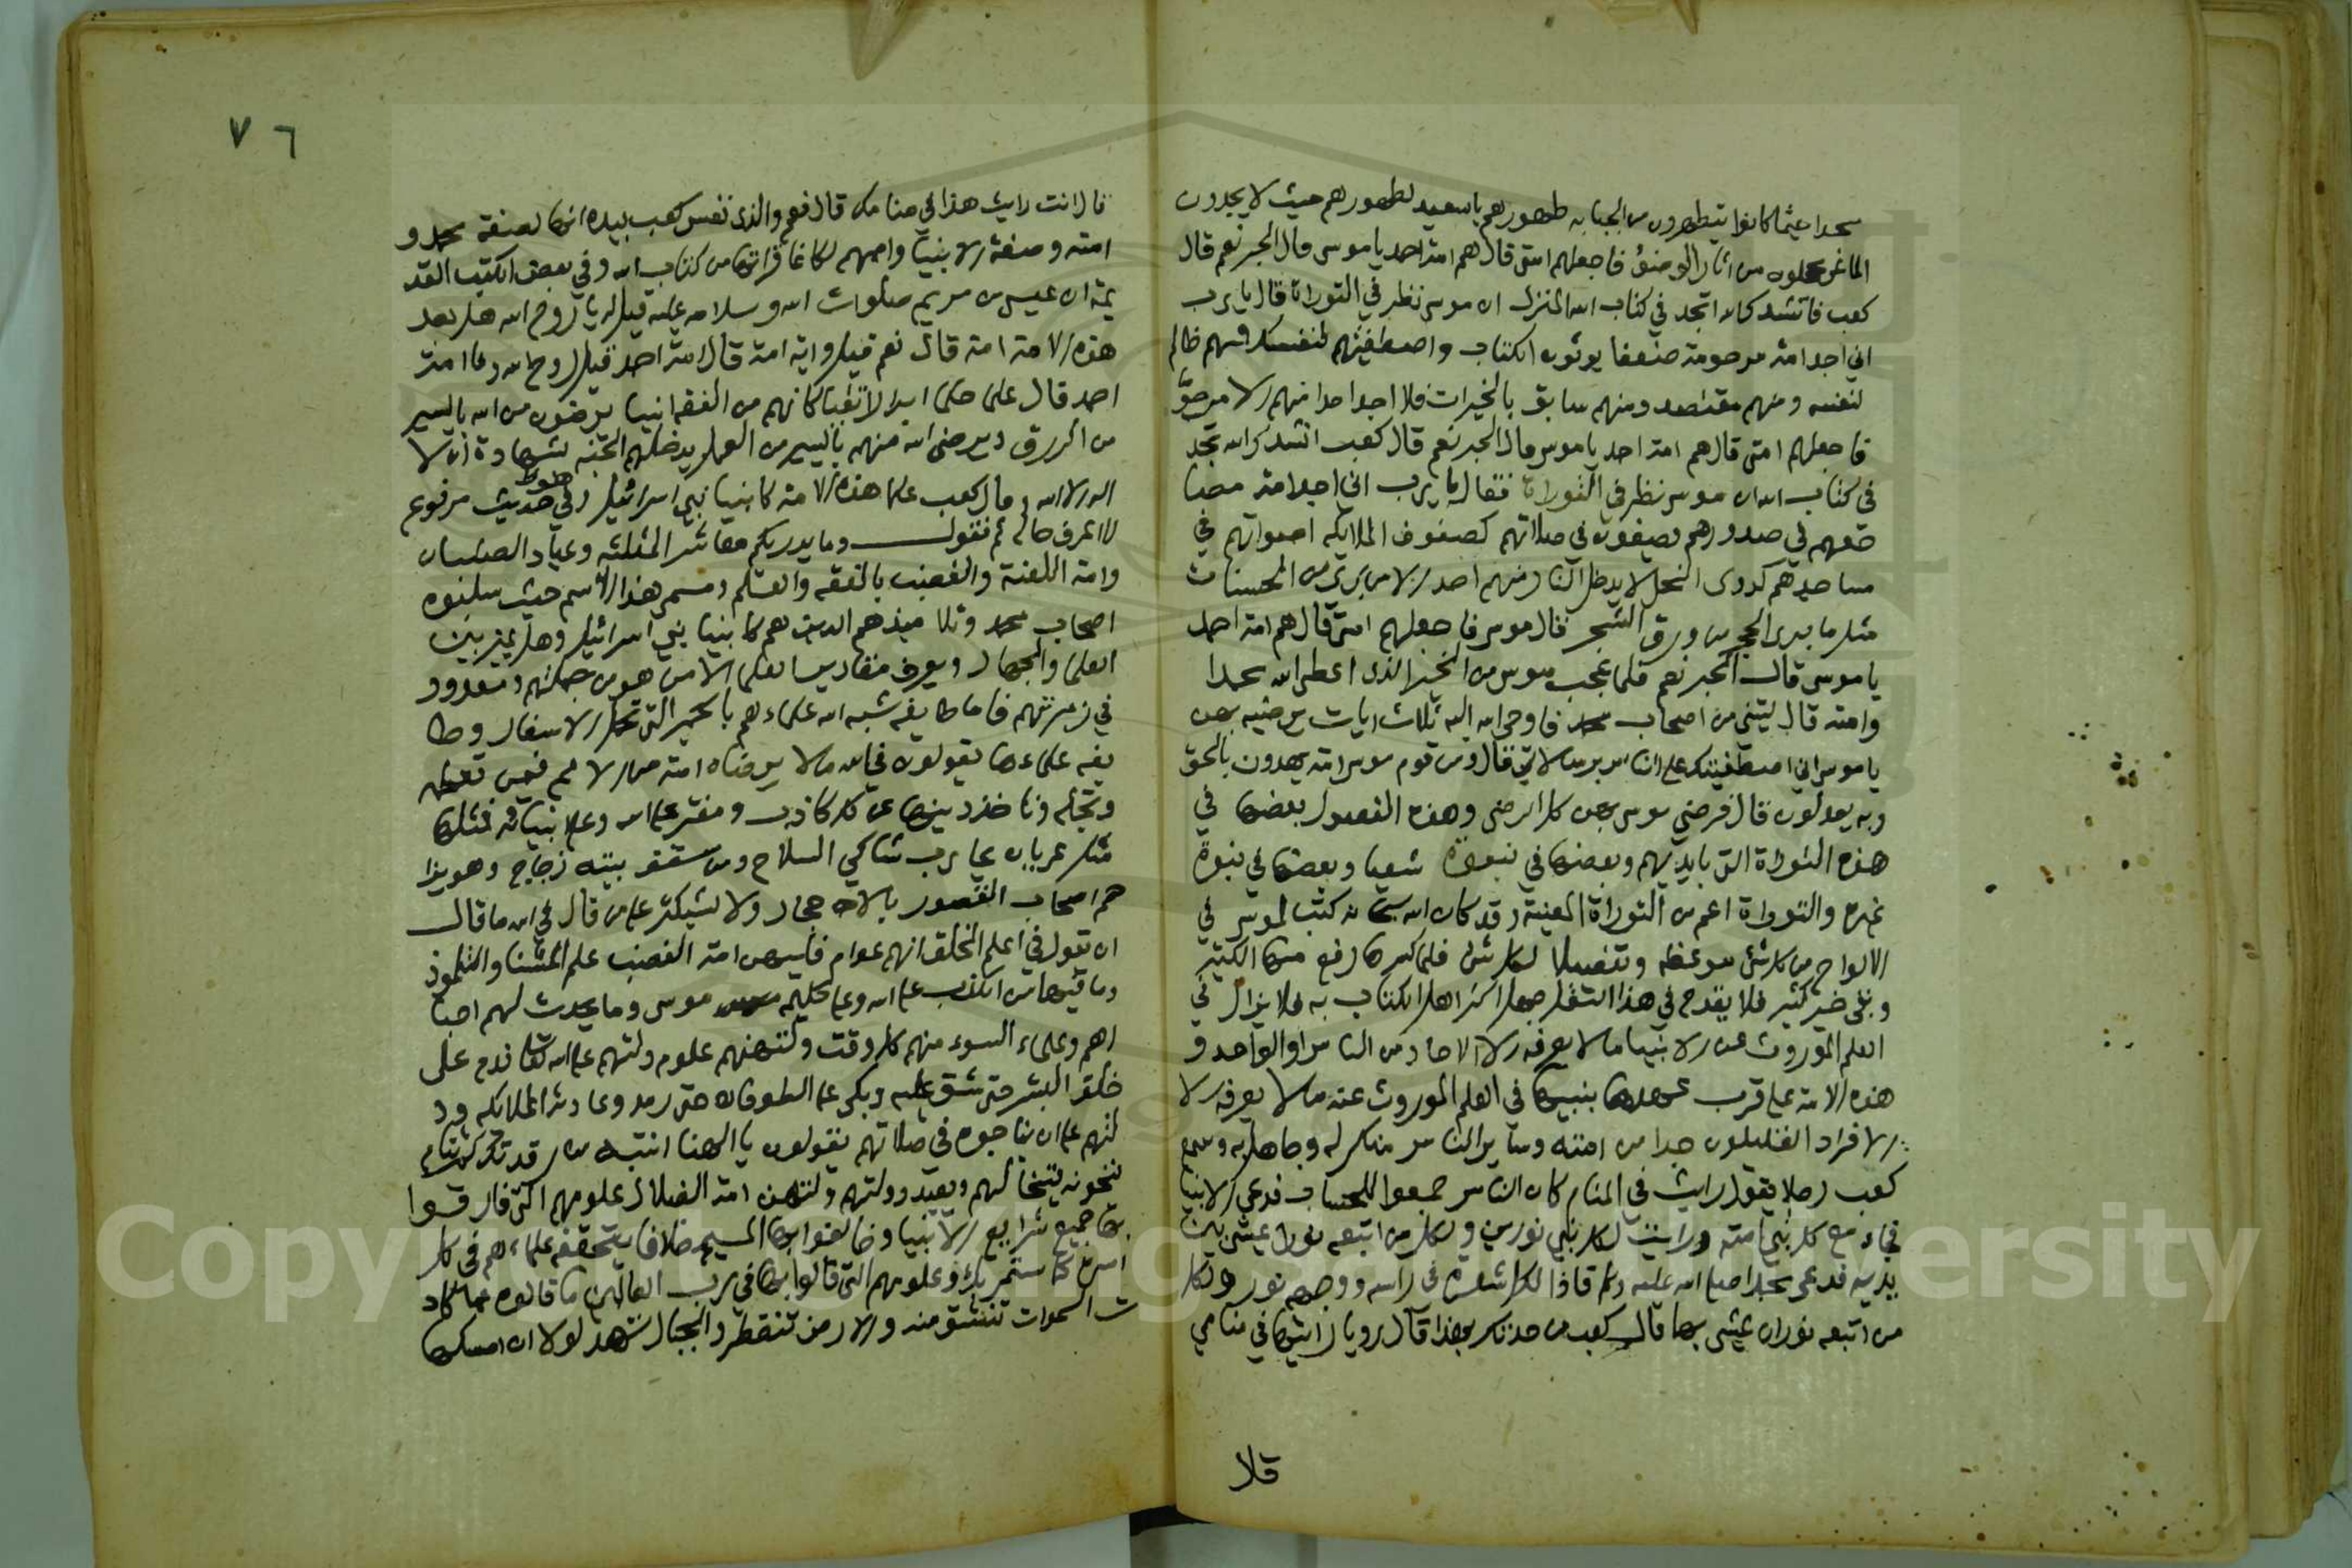 سجدا حيثما كانوا يتطهرون من الجنابة طهورهم بالصعيد كطهورهم حيث لا يجدون
الماء غر محجلون من اثار الوضوء فاجعلهم امتي قال هم امة احمد يا موسى قال الحبر نعم قال
كعب فانشدك الله اتجد في كتاب الله المنزل ان موسى نظر في التوراة قال يا رب
اني اجد امة مرحومة ضعفا يورثون الكتاب واصطفيتهم لنفسك فمنهم ظالم
لنفسه ومنهم مقتصد ومنهم سابق بالخيرات فلا اجد احدا منهم الا مرحوما
فاجعلهم امتي قال هم امة احمد يا موسى قال الحبر نعم قال كعب انشدك الله تجد
في كتاب الله ان موسى نظر في التوراة فقال يا رب اني اجد امة مصا
حفهم في صدورهم يصفون في صلاتهم كصفوف الملايكه اصواتهم في
مساجدهم كدوى النحل لا يدخل النار منهم احد الا من بري من الحسنات
مثل ما برى الحجر من ورق الشجر قال موسى فاجعلهم امتي قال هم امة احمد
يا موسى قال الحبر نعم فلما عجب موسى من الخير الذي اعطى الله محمدا
وامته قال ليتني من اصحاب محمد فاوحى الله اليه ثلاث ايات يرضيه بهن
يا موسى اني اصطفيتك على الناس برسالاتي قال ومن قوم موسى امة يهدون بالحق
وبه يعدلون قال فرضي موسى كل الرضى وهذه الفصول بعضها في
هذه التوراة التي بايديهم وبعضها في نبوة شعيا وبعضها في نبوة
غيره والتوراة اعم من التوراة المعينة وقد كان الله سبحانه كتب لموسى في
الالواح من كل شئ موعظه وتفصيلا لكل شئ فلما كسرها رفع منها الكثير
وبقى خير كثير فلا يقدح في هذا النقل جهل اكثر اهل الكتاب به فلا يزال في
العلم الموروث عن الانبيا ما لا يعرفه الا الاحاد من الناس او الواحد و
هذه الامة على قرب عهدها بنبيها في العلم الموروث عنه ما لا يعرفه الا
الافراد القليلون جدا من امته وساير الناس منكر له وجاهل به وسمع
كعب رجلا يقول رايت في المنام كان الناس جمعوا للحساب فدعي الانبيا
فجاء مع كل نبي امته ورايت لكل نبي نورين ولكل من اتبعه نورا يمشي بين
يديه فدعى محمد صلى الله عليه وسلم فاذا لكل شعرة في راسه ووجهه نور ولكل
من اتبعه نوران يمشي بها قال كعب من حدثك بهذا قال رويا رايتها في منامي
قلا
٧٦
قال انت رايت هذا في منامك قال نعم والذي نفس كعب بيده انها لصفة محمد و
امته وصفة الانبيا واممهم لكانما قراتها من كتاب الله وفي بعض الكتب القد
يمة ان عيسى بن مريم صلوات الله وسلامه عليه قيل له يا روح الله هل بعد
هذه الامة امة قال نعم قيل واية امة قال امة احمد قيل يا روح الله وما امة
احمد قال علما حلما ابرار اتقيا كانهم من الفقه انبيا يرضون من الله باليسير
من الرزق ويرضى الله منهم باليسير من العمل يدخلهم الجنة بشهادة ان لا
اله الا الله وقال كعب علما هذه الامة كانبيا بني اسرائيل وفي حديث مرفوع
لا اعرف حاله ثم نقول وما يدريكم معاشر المثلثه وعباد الصلبان
وامة اللعنة والغضب بالفقه والعلم ومسمى هذا الاسم حيث سلبوه
اصحاب محمد وتلاميذهم الذين هم كانبيا بني اسرائيل وهل يميز بين
العلما والجهال ويعرف مقادير العلما الا من هو من جملتهم ومعدود
في زمرتهم فاما طايفه شبه الله علماءهم بالحمير التي تحمل الاسفار وطا
يفه علماءها يقولون في الله ما لا يرضاه امة من الامم فيمن تعظمه
وتجله وتاخذ دينها عن كل كاذب ومفتر على الله وعلى انبيائه فمثلها
مثل عريان يحارب شاكي السلاح ومن سقف بيته زجاج وهو يزا
حم اصحاب القصور بالاحجار ولا يستكثر على من قال في الله ما قال
ان تقول في اعلم الخلق انهم عوام فليهن امة الغضب علم المشنا والتلموذ
وما فيهما من الكذب على الله وعلى كليمه موسى وما يحدث لهم احبا
رهم وعلماء السوء منهم كل وقت ولتهنهم علوم دلتهم على ان الله ندم على
خلق البشر حتى شق عليه وبكى على الطوفان حتى رمد وعادته الملايكه ود
لتهم على ان يناجوه في صلاتهم يقولون يا الهنا انتبه من رقدتك كم تنام
ينخونه لينتخي لهم ويعيد دولتهم ولتهن امة الضلال علومهم التي فارقوا
بها جميع شرايع الانبيا وخالفوا بها المسيح خلافا يتحققه علماءهم في كل
امره كما ستمر بك وعلومهم التي قالوا بها في رب العالمين ما قالوه مما كاد
ت السموات تنشق منه والارض تنفطر والجبال تنهد لولا ان امسكها